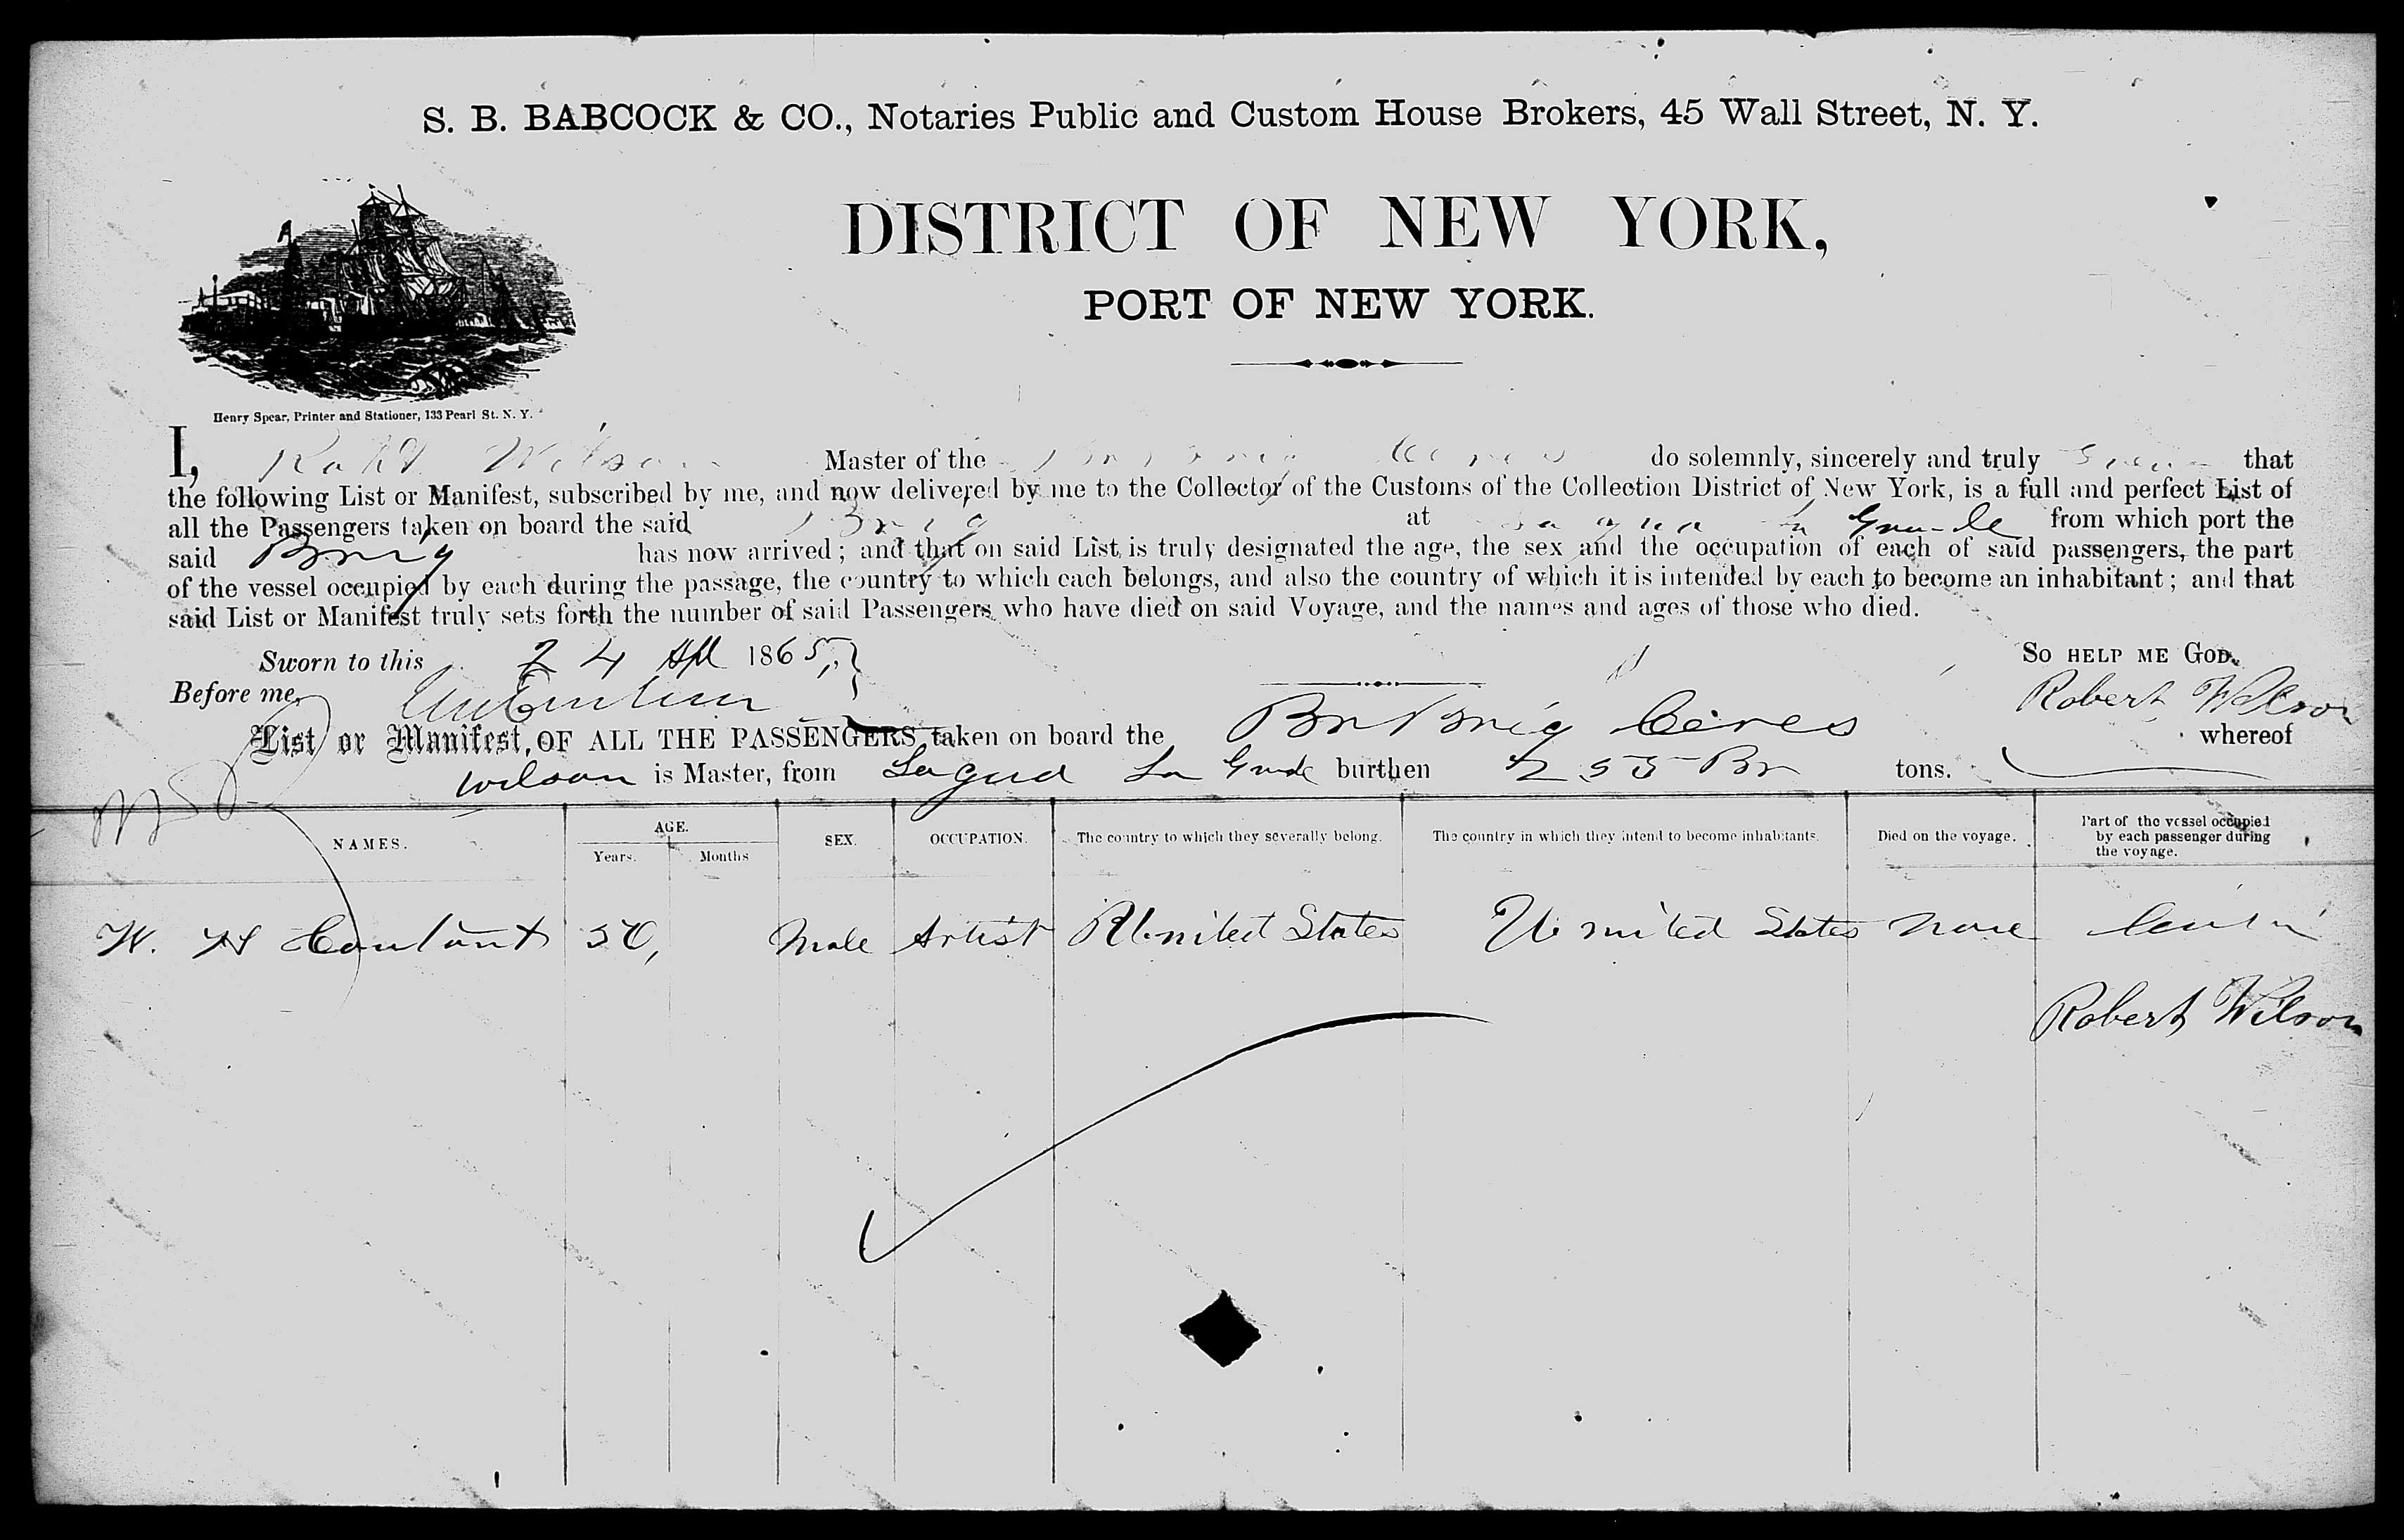 S. B. BABCOCK & CO., Notaries Public and Custom House Brokers, 45 Wall Street, N. Y.
DISTRICT OF NEW YORK,
PORT OF NEW YORK.
Henry Spear, Printer and Stationer, 133 Pearl St. N. Y.
I, Robt Wilson Master of the do solemnly, sincerely and truly that
the following List or Manifest, subscribed by me, and now delivered by me to the Collector of the Customs of the Collection District of New York, is a full and perfect List of
all the Passengers taken on board the said Brig at Sagua La Grande from which port the
said Brig has now arrived; and that on said List is truly designated the age, the sex and the occupation of each of said passengers, the part
of the vessel occupied by each during the passage, the country to which each belongs, and also the country of which it is intended by each to become an inhabitant; and that
said List or Manifest truly sets forth the number of said Passengers who have died on said Voyage, and the names and ages of those who died.
Sworn to this 24 Apl 1865, SO HELP ME GOD.
Before me, Robert Wilson
List or Manifest, OF ALL THE PASSENGERS taken on board the Br Brig Ceres whereof
Wilson is Master, from Sagua La Grande burthen 255 Br tons.
NAMES. AGE. Years. Months SEX. OCCUPATION. The country to which they severally belong. The country in which they intend to become inhabitants. Died on the voyage. Part of the vessel occupied by each passenger during the voyage.
W. H Coutant 50, Male Artist United States United States None Cabin
Robert Wilson